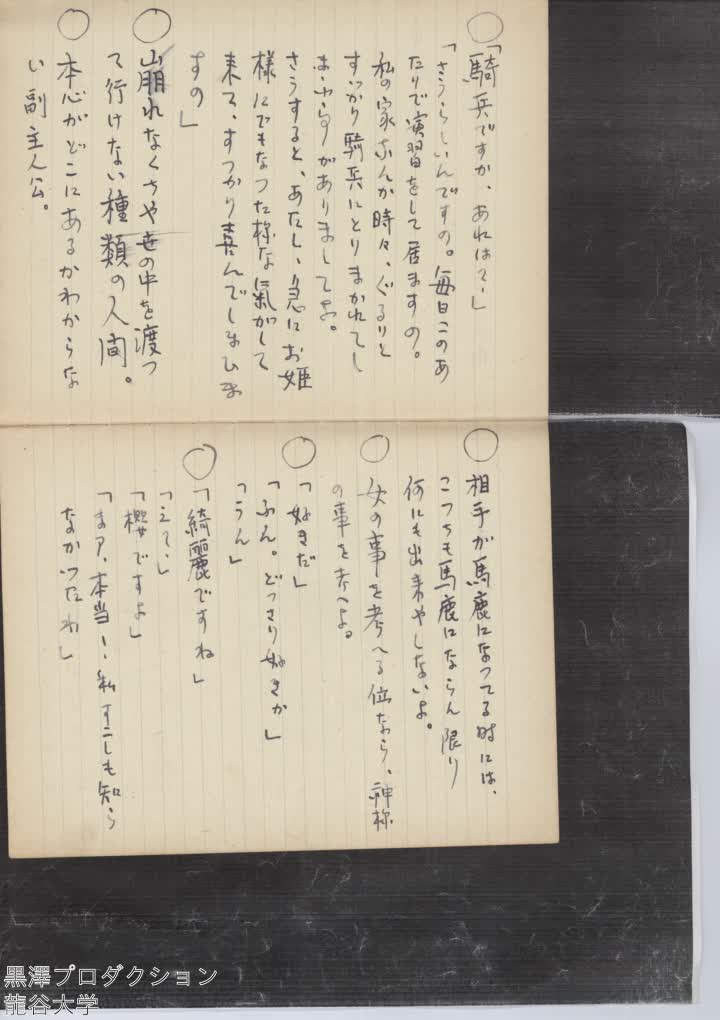 ○
「騎兵ですか、あれはて、」
「さうらしいんですの。毎日このあ
たりで演習をして居ますの。
私の家なんか時々、ぐるりと
すっかり騎兵にとりまかれてし
まふ事がありましてよ。
さうすると、あたし、急にお姫
様にでもなつた様な氣がして
来て、すつかり喜んでしまひま
すの」
○
山崩れなくちや世の中を渡つ
て行けない種類の人間。
○
本心がどこにあるかわからな
い副主人公。
○
相手が馬鹿になつてる時には、
こつちも馬鹿にならん限り
何にも出来やしないよ。
○
女の事を考へる位なら、神様
の事を考へよ。
○
「好きだ」
「ふん。どつさり好きか」
「うん」
○
「綺麗ですね」
「えゝ」
「櫻ですよ」
「まア、本当に、私すこしも知ら
なかつたわ」
黒澤プロダクション
龍谷大学